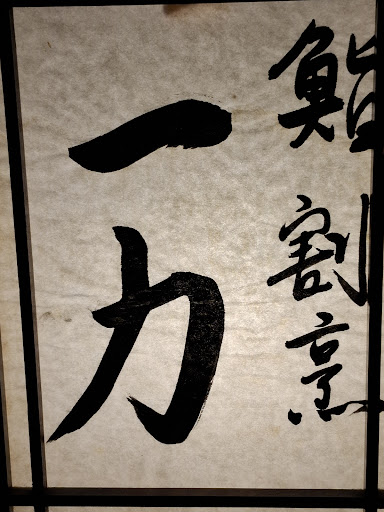 鮨割烹
一力